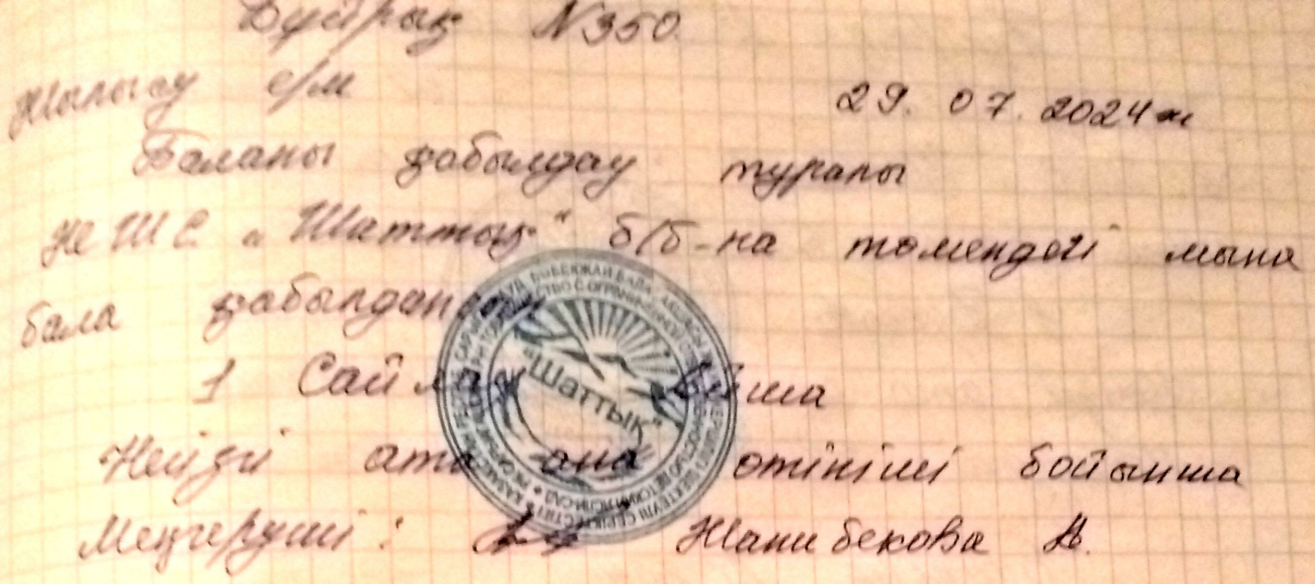 Бұйрық N350.
Жылысу е/м 29. 07. 2024ж
Баланы қабылдау туралы
ЖШС „Шаттық“ б/б-на төмендегі мына
бала қабылдансын
1 Сайлау
Негізгі ата ана өтініші бойынша
Меңгеруші: Жанибекова А.
"Шаттық"